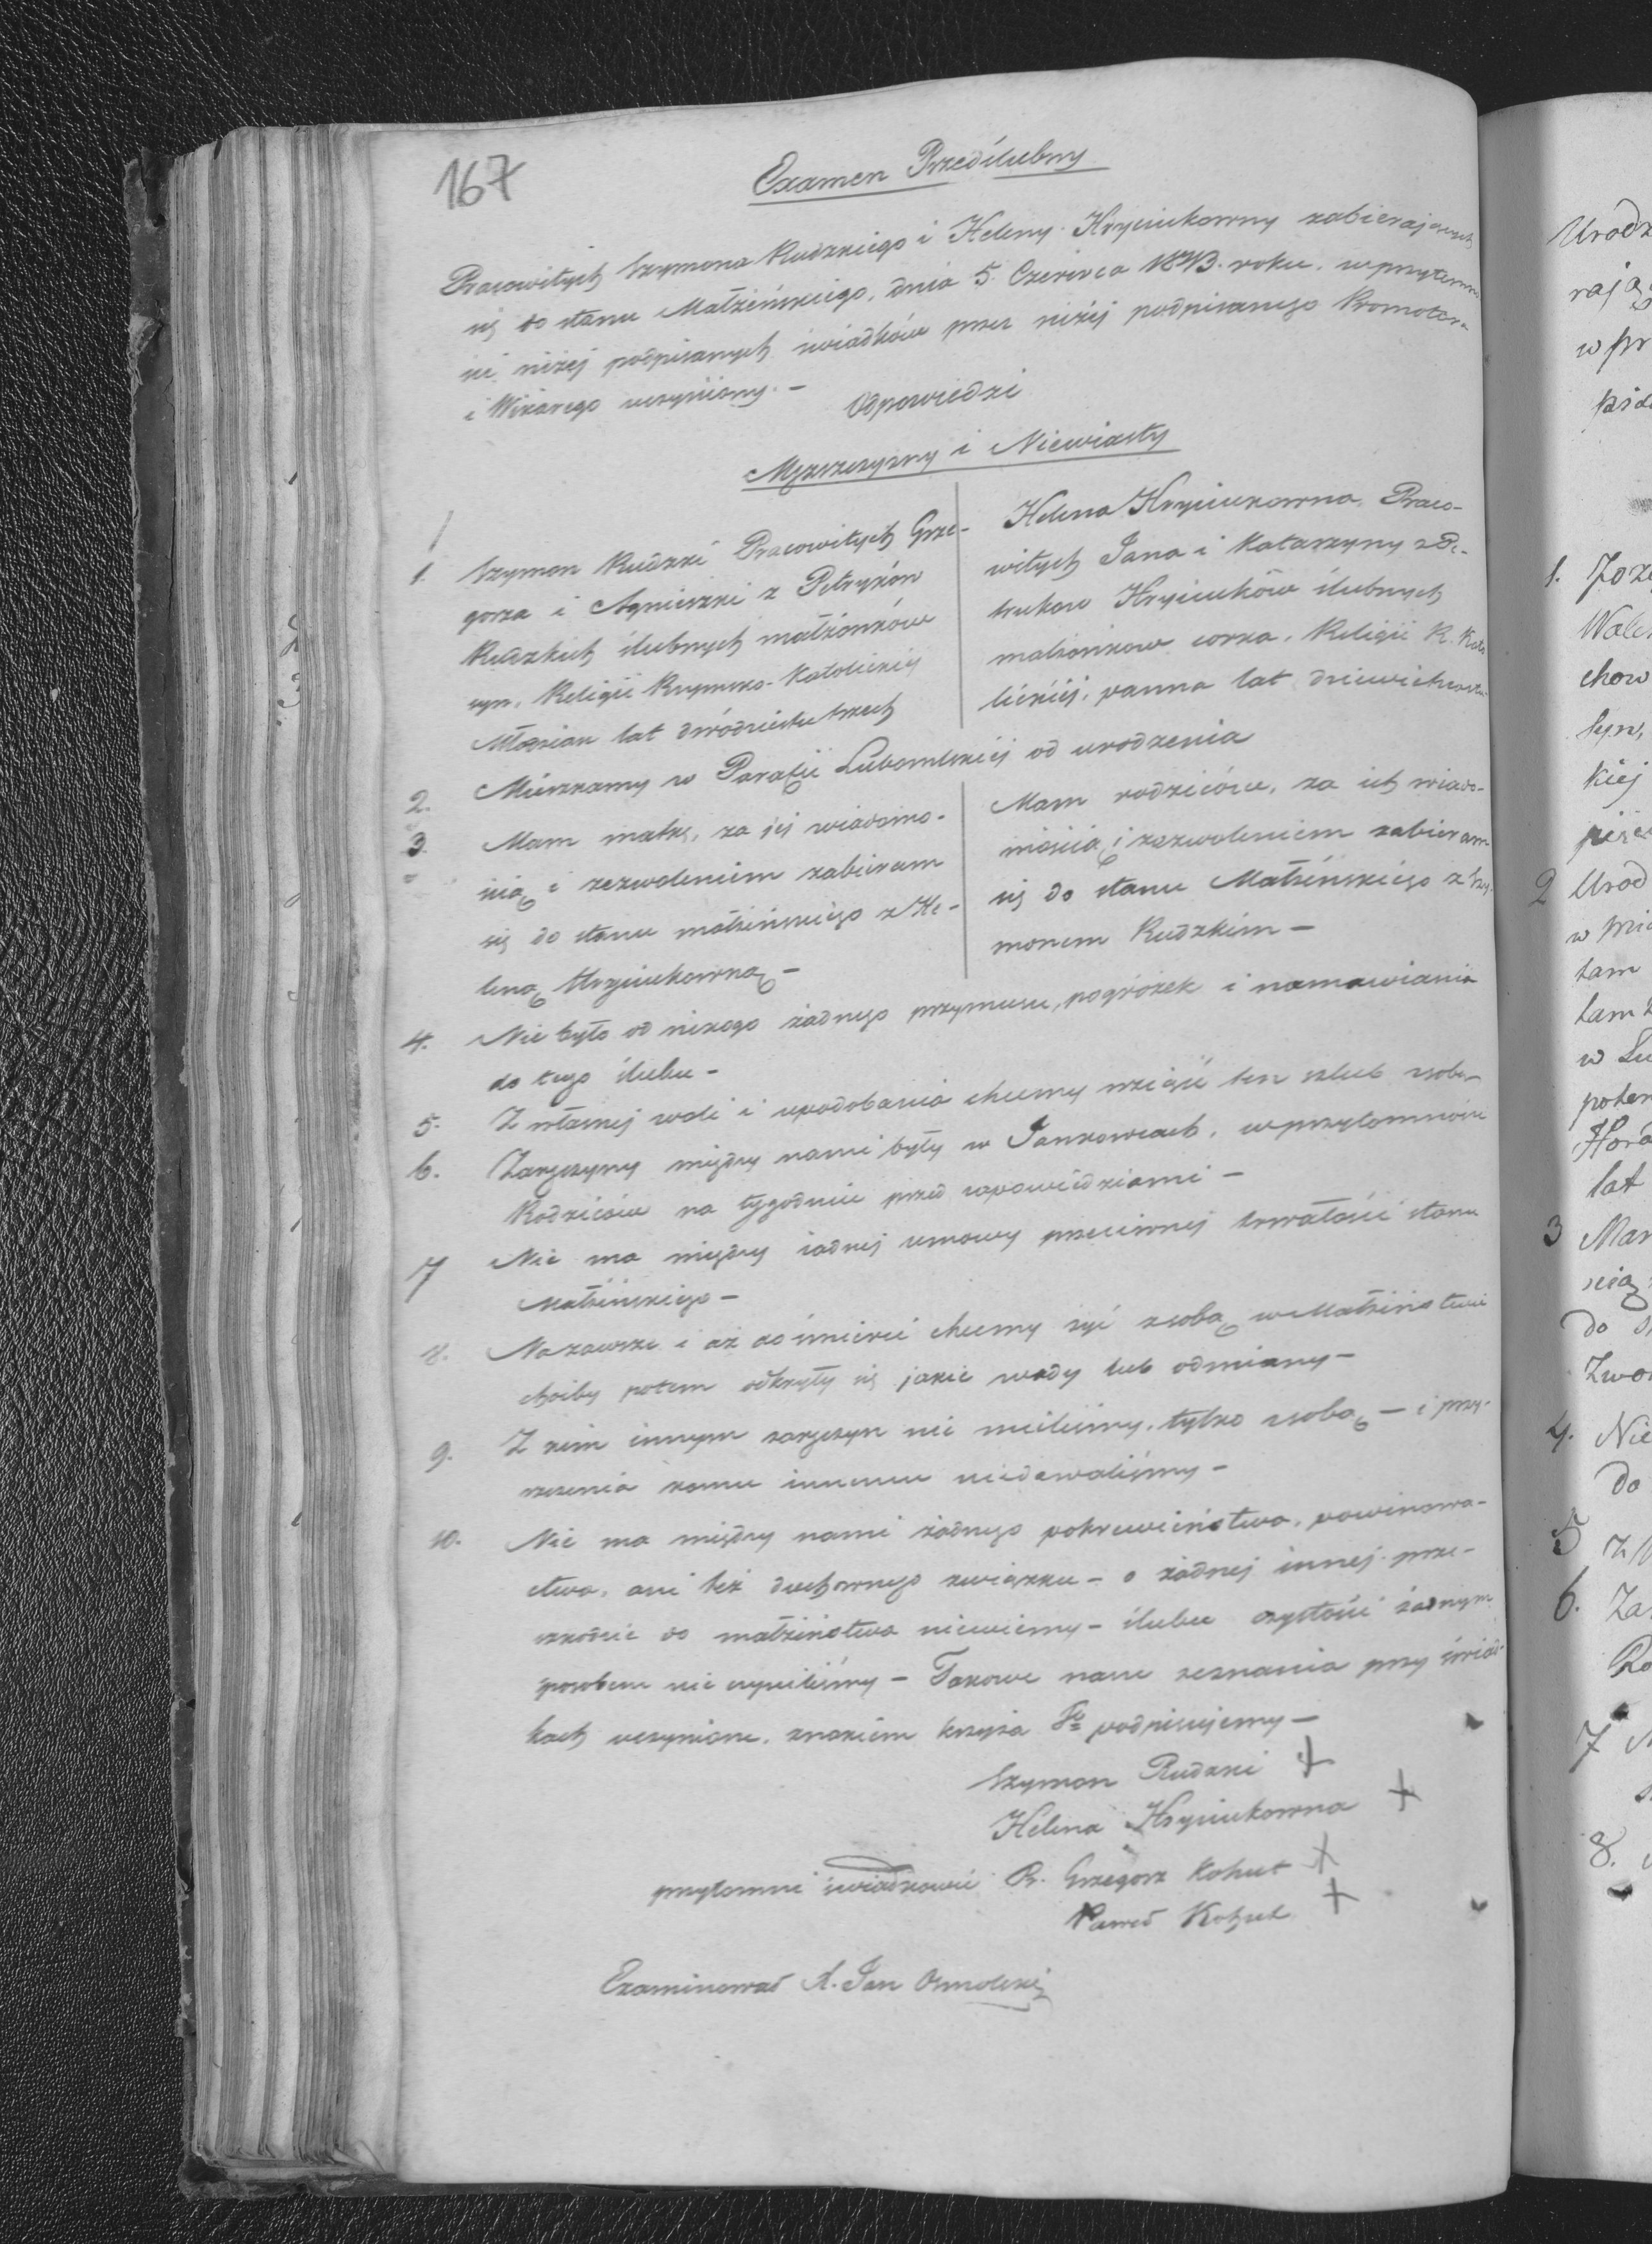 167
Examen Przedślubny
Pracowitych Szymona Rudzkiego i Heleny Hryciukowny zabierających
się do stanu Małżeńskiego, dnia 5. Czerwca 1843. roku, w przytomno
ści niżej podpisanych świadków przez niżej podpisanego Promotora
i Wikarego uczyniony. –
Odpowiedzi
Męszczyzny i Niewiasty
1. Szymon Rudzki Pracowitych Grze-
gorza i Agnieszki z Petryków
Rudzkich ślubnych małżonków
syn, Religii Rzymsko-Katolickiej
Młodzian lat dwódziestu trzech
Helena Hryciukowna, Praco-
witych Jana i Katarzyny z Pe-
trukow Hryciuków ślubnych
małżonkow corka, Religii R. Kato
lickiej, panna lat dziewietnastu
2. Mieszkamy w Parafii Lubomlskiej od urodzenia
3. Mam matkę, za jej wiadomo-
ścią i zezwoleniem zabieram
się do stanu małżeńskiego z He-
leną Hryciukowną –
Mam rodziców, za ich wiado-
mością i zezwoleniem zabieram
się do stanu Małżeńskiego z Szy-
monem Rudzkim –
4. Nie było od nikogo żadnego przymusu, pogróżek i namawiania
do tego ślubu –
5. Z własnej woli i upodobania chcemy wziąść ten szlub z sobą –
6. Zaręczyny między nami były w Jankowcach, w przytomności
Rodziców na tygodniu przed zapowiedziami –
7 Nie ma między żadnej umowy przeciwnej trwałości stanu
Małżeńskiego –
8. Nazawsze i aż do śmierci chcemy żyć z sobą w Małżeństwie
choćby potem odkryły się jakie wady lub odmiany –
9. Z kim innym zaręczyn nie mieliśmy, tylko z sobą – i przy-
rzeczenia komu innemu niedawaliśmy –
10. Nie ma między nami żadnego pokrewieństwa, powinowa-
ctwa, ani też duchownego związku – o żadnej innej prze-
szkodzie do małżeństwa niewiemy – ślubu czystości żadnym
sposobem nie czyniliśmy – Takowe nasze zeznania przy świad-
kach uczynione, znakiem krzyża podpisujemy –
Szymon Rudzki +
Helena Hryciukowna +
przytomni świadkowie P. Grzegorz Kohut +
Paweł Kohut +
Examinował X. Jan Osmolski
Urodz
raja
w pr
1. Joze
Wale
chow
Syn,
kiej
2 Urod
w
tam
tam
w Lu
poten
lat
3 Mam
scią
do
Zwo
4. Nie
do
5
6. Za
Ro
7
8.